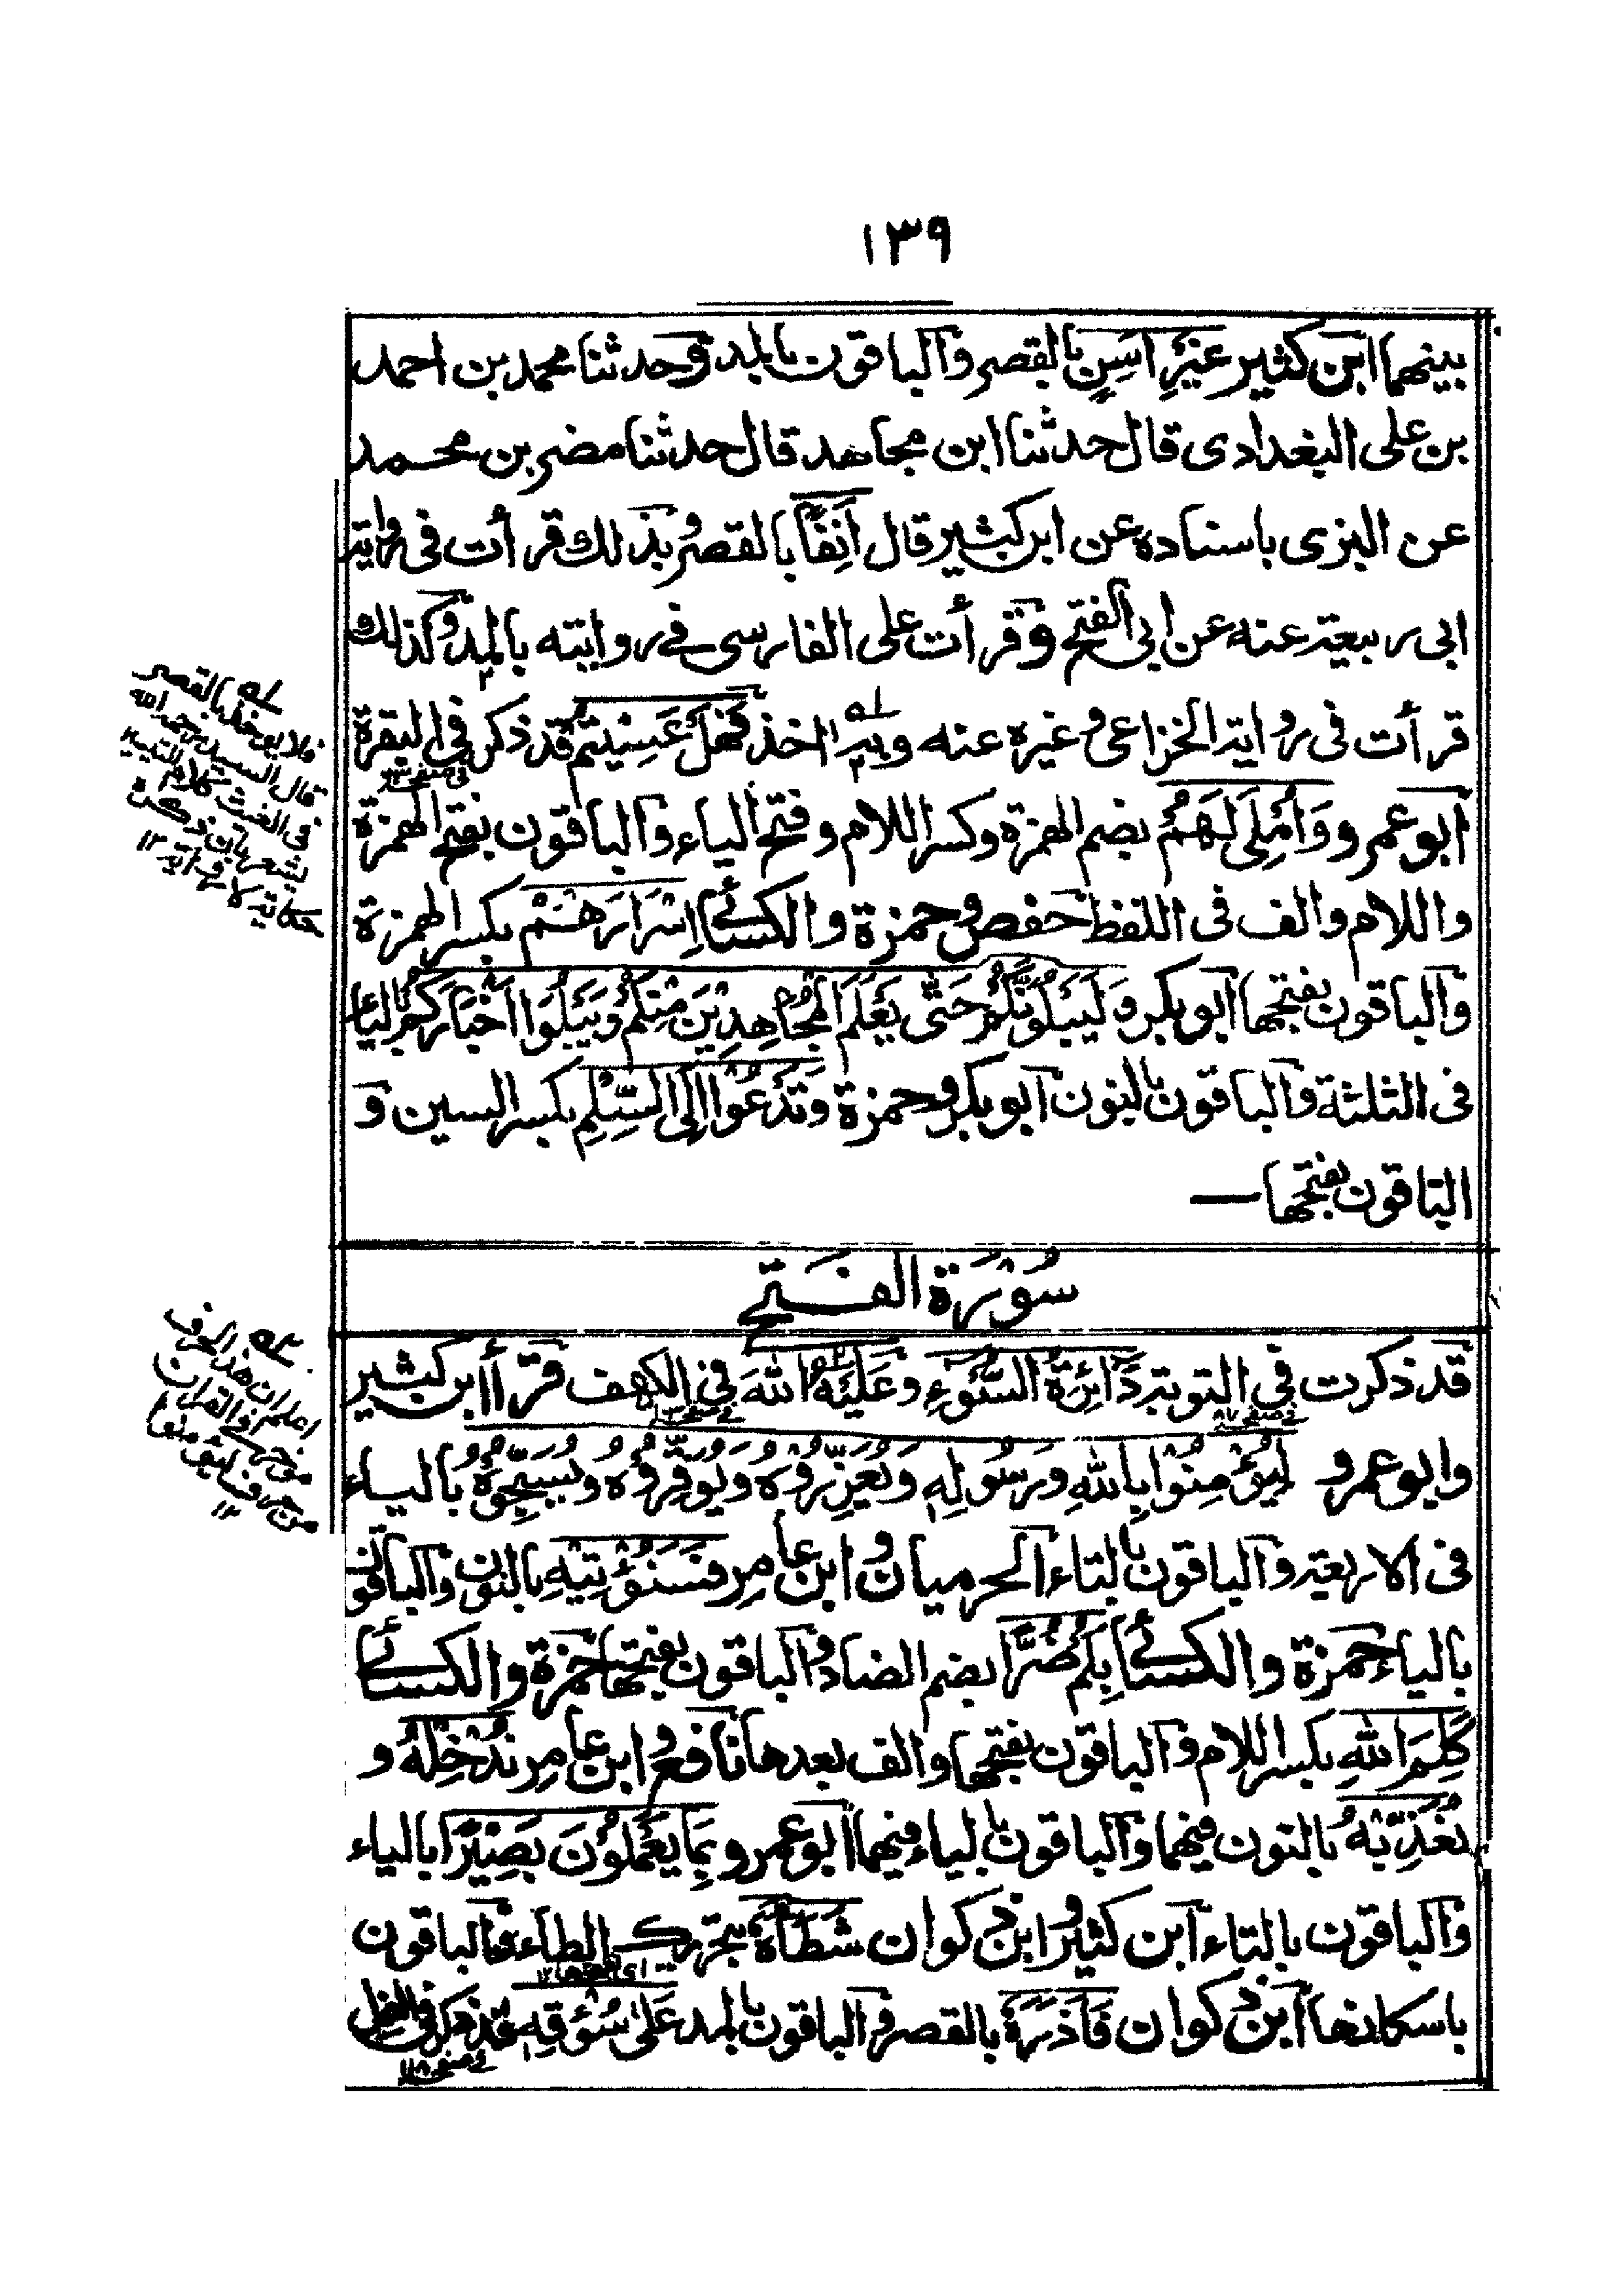 ١٣٩
بينهما ابن كثير غَيْرِ اَسِنٍ بالقصر والباقون بالمد وحدثنا محمد بن احمد
بن على البغدادى قال حدثنا ابن مجاهد قال حدثنا مضر بن محمد
عن البزى باسناده عن ابن كثير قال اَنِفًا بالقصر وبذلك قرأت فى رواية
ابى ربيعة عنه عن ابى الفتح وقرأت على الفارسى فى روايته بالمد وكذلك
قرأت فى رواية الخزاعى وغيره عنه وبه اخذ فَهَلْ عَسَيْتُمْ قد ذكر فى البقرة
فى صفحه
ابو عمرو وَاُمْلِىَ لَهُمْ بضم الهمزة وكسر اللام وفتح الياء والباقون بفتح الهمزة
واللام والف فى اللفظ حفص وحمزة والكسائى اِسْرَارَهُمْ بكسر الهمزة
والباقون بفتحها ابو بكر وَلَيَبْلُوَنَّكُمْ حَتّٰى يَعْلَمَ الْمُجَاهِدِيْنَ مِنْكُمْ وَيَبْلُوَا اَخْبَارَكُمْ بالياء
فى الثلثة والباقون بالنون ابو بكر وحمزة وَتَدْعُوْا اِلَى السِّلْمِ بكسر السين و
الباقون بفتحها —
سُوْرَةُ الفَتْحِ
قد ذكرت فى التوبة دَائِرَةُ السَّوْءِ وعَلَيْهُ اللهَ فى الكهف قرأ ابن كثير
فى صفحه ٨٧
فى صفحه
وابو عمرو لِيُؤْمِنُوْا بِاللهِ وَرَسُوْلِهٖ وَيُعَزِّرُوْهُ وَيُوَقِّرُوْهُ وَيُسَبِّحُوْهُ بالياء
فى الاربعة والباقون بالتاء الحرميان وابن عامر فَسَنُؤْتِيْهِ بالنون والباقون
بالياء حمزة والكسائى بِكُمْ ضُرًّا بضم الضاد والباقون بفتحها حمزة والكسائى
كَلِمَ اللهِ بكسر اللام والباقون بفتحها والف بعدها نافع وابن عامر نُدْخِلْهُ و
نُعَذِّبْهُ بالنون فيهما والباقون بالياء فيهما ابو عمرو بِمَا يَعْمَلُوْنَ بَصِيْرًا بالياء
والباقون بالتاء ابن كثير وابن ذكوان شَطَأَهُ بتحريك الطاء والباقون
باسكانها ابن ذكوان فَاَزَرَهُ بالقصر والباقون بالمد عَلٰى سُوْقِهٖ قد ذكر فى النمل
فى صفحه ١١٨
قال السيد
فى الغيث كلام التيسير
اعلم ان هذا الحرف
١٢